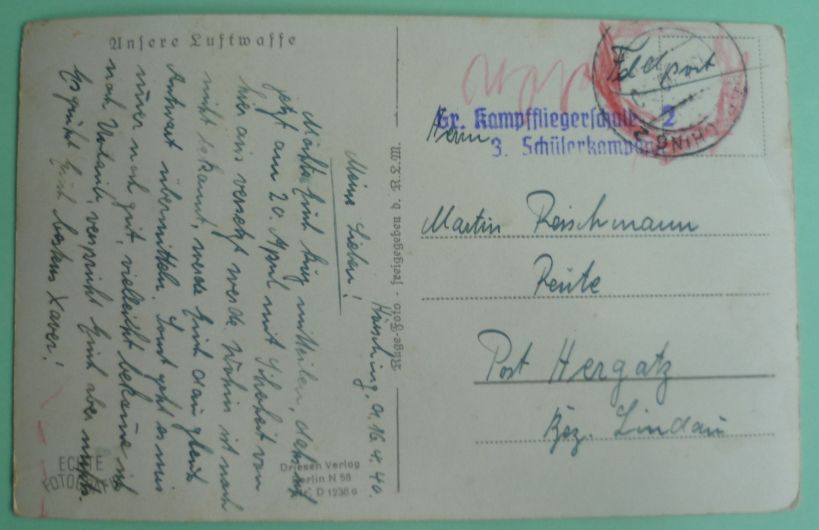 Unsere Luftwaffe
Hörsching, d. 16.4.40.
Meine Lieben!
Möchte Euch kurz mitteilen, daß ich
jetzt am 20. April mit Sicherheit von
hier aus versetzt werde. Wohin ist noch
nicht bekannt, werde Euch dann gleich
Antwort übermitteln. Sonst geht es mir
immer noch gut, vielleicht bekomme ich
noch Urlaub, verspricht Euch aber nichts.
Es grüßt Euch bestens Xaver!
ECHTE
FOTOGRAFIE
Driesen Verlag
Berlin N 58
D 1238 a
Kluge-Foto - freigegeben d. R.L.M.
Feldpost
Gr. Kampffliegerschule 2
3. Schülerkompanie
Herrn
Martin Reischmann
Reute
Post Hergatz
Bez. Lindau